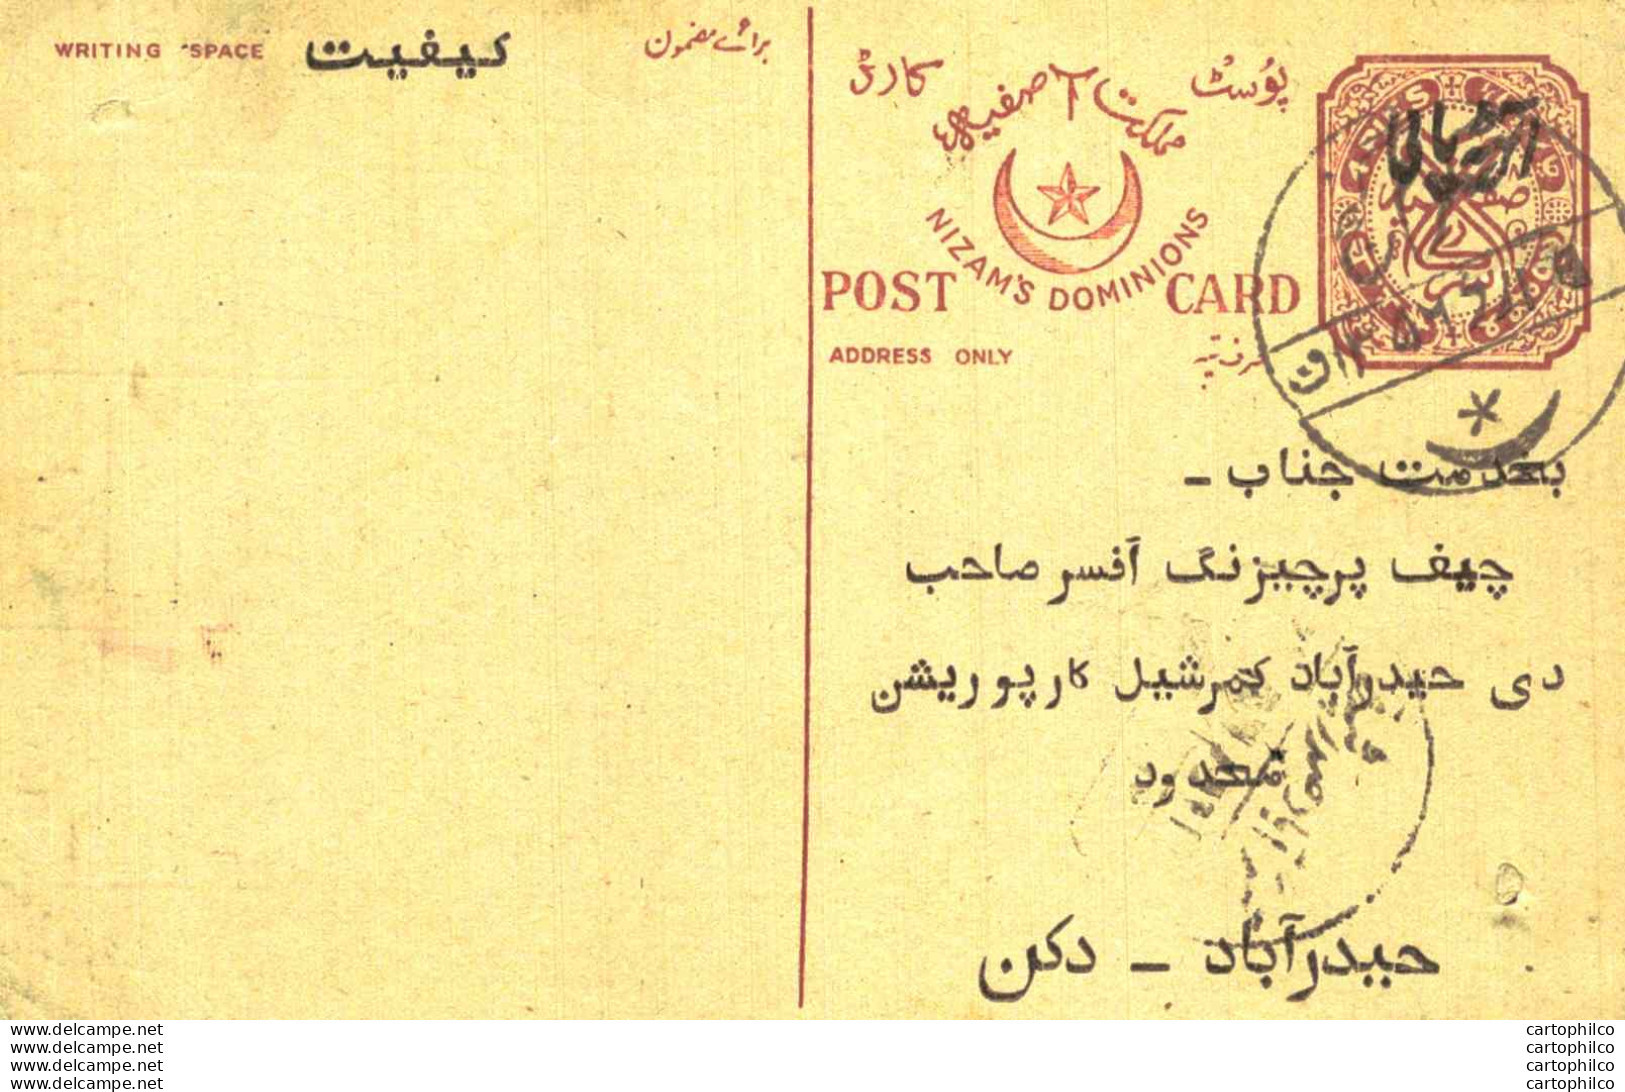 WRITING SPACE کیفیت برائے مضمون
پوسٹ کارڈ
مملکت آصفیہ
NIZAM'S DOMINIONS
POST CARD
ADDRESS ONLY صرف پتہ
بخدمت جناب -
چیف پرچیزنگ آفسر صاحب
دی حیدرآباد کمرشیل کارپوریشن
محدود
حیدرآباد - دکن
www.delcampe.net
www.delcampe.net
www.delcampe.net
www.delcampe.net
cartophilco
cartophilco
cartophilco
cartophilco